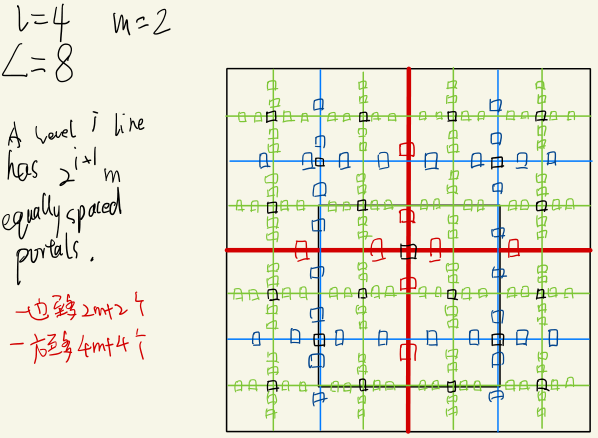 l=4 m=2
L=8
A level i line
has 2^{i+1} m
equally spaced
portals.
一边至多2m+2个
一方至多4m+4个